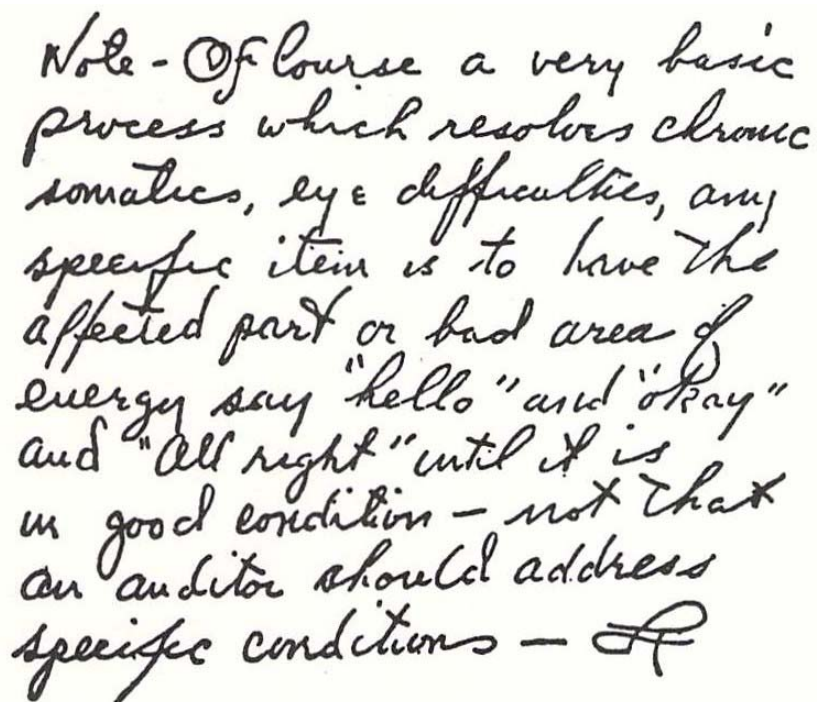 Note - Of Course a very basic
process which resolves chronic
somatics, eye difficulties, any
specific item is to have the
affected part or bad area of
energy say "hello" and "okay"
and "all right" until it is
in good condition — not that
an auditor should address
specific conditions —